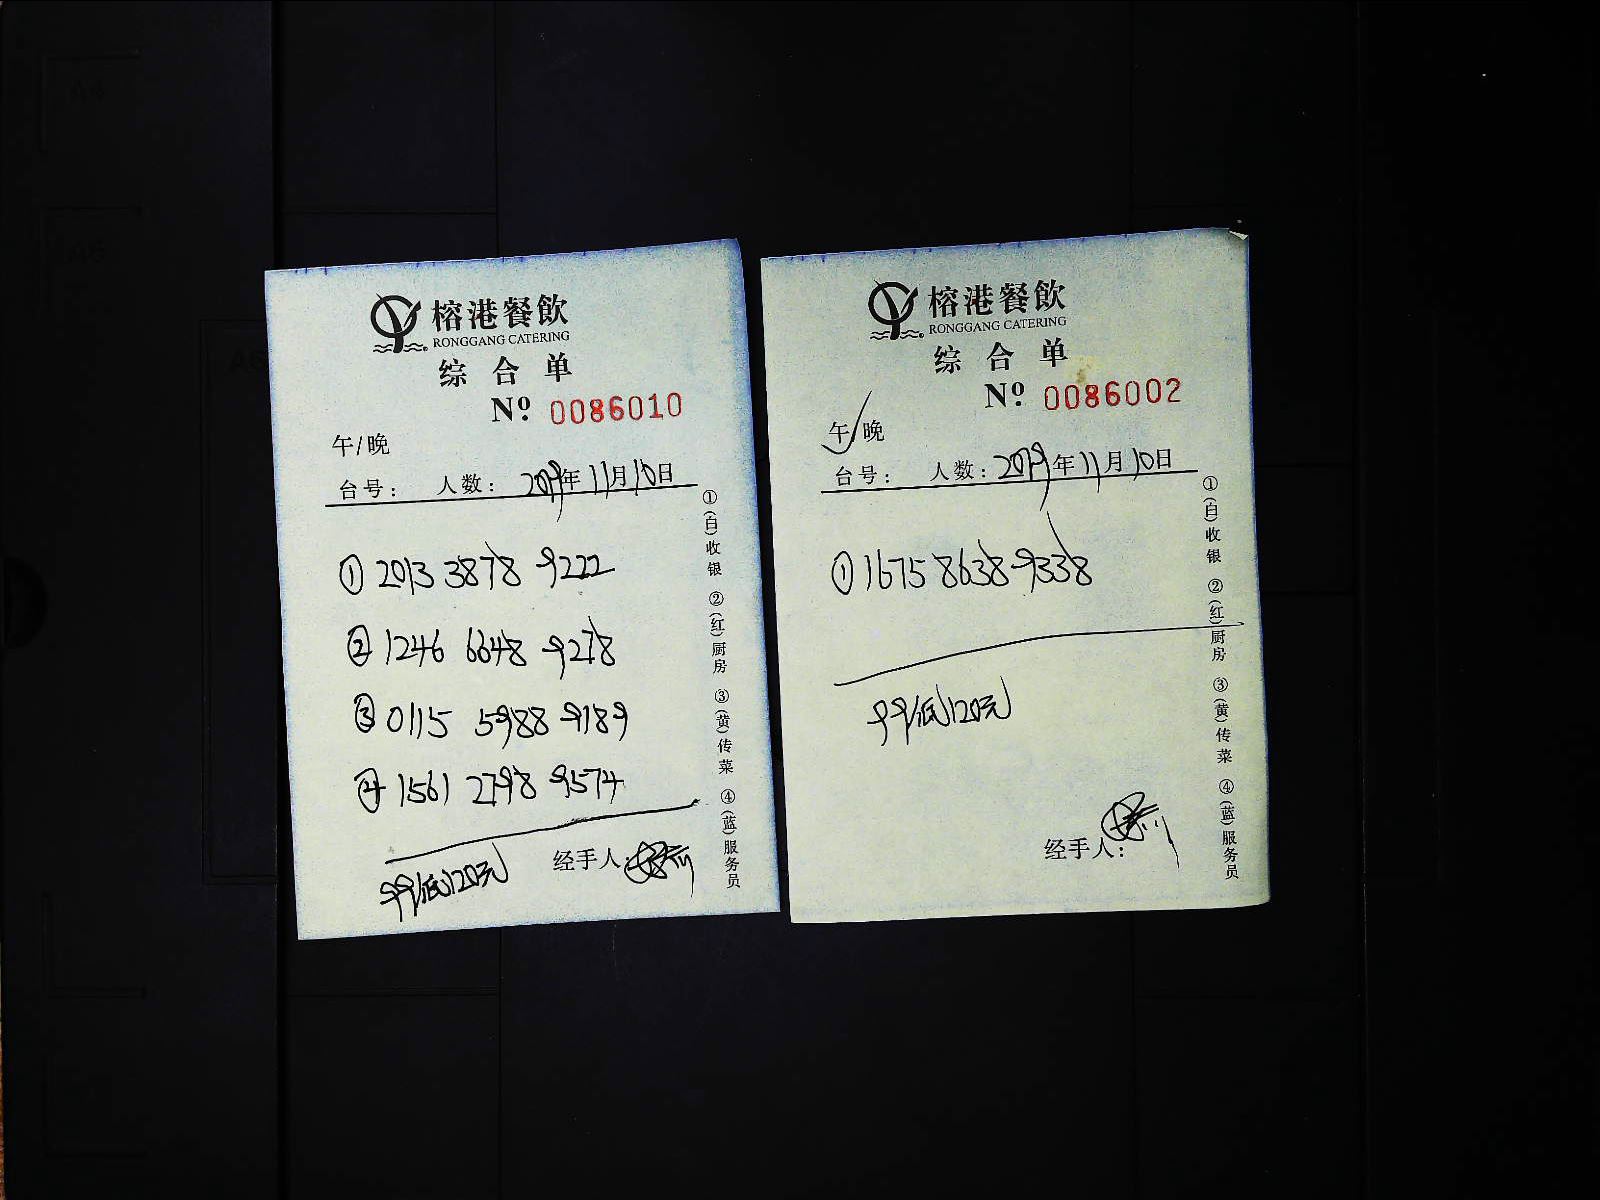 榕港餐飲
RONGGANG CATERING
综合单
Nº 0086010
午/晚
台号: 人数: 2019年11月10日
① 2013 3878 9222
② 1246 6648 9278
③ 0115 5988 9189
④ 1561 2798 9574
99低120元
经手人:
①(白)收银 ②(红)厨房 ③(黄)传菜 ④(蓝)服务员
榕港餐飲
RONGGANG CATERING
综合单
Nº 0086002
午/晚
台号: 人数: 2019年11月10日
① 1675 8638 9338
99低120元
经手人:
①(白)收银 ②(红)厨房 ③(黄)传菜 ④(蓝)服务员